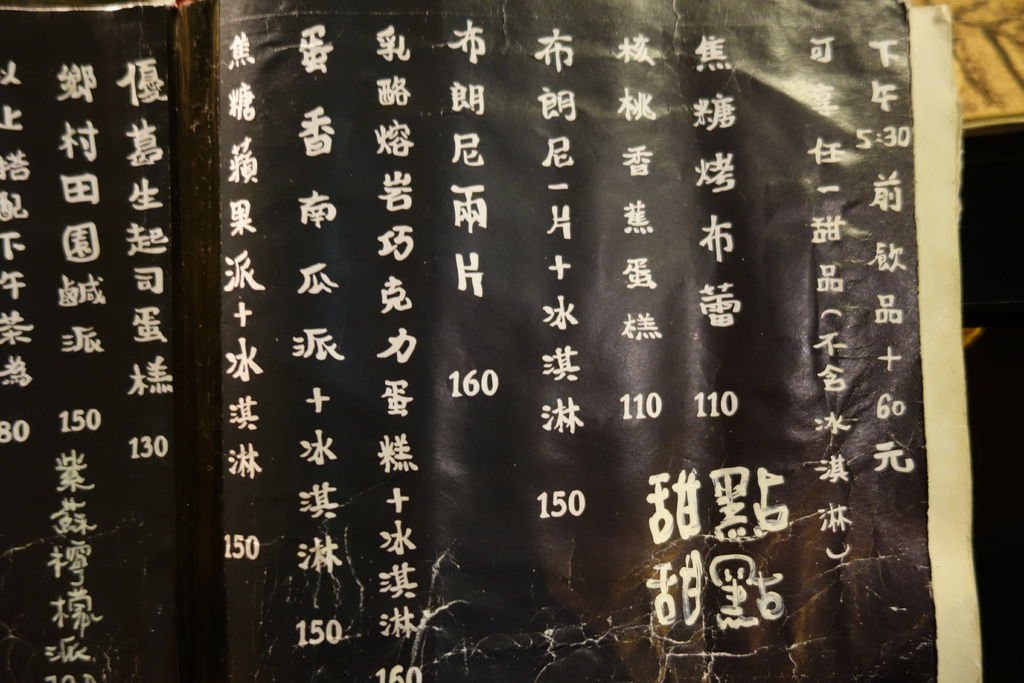 下午5:30前飲品+60元
可享任一甜品(不含冰淇淋)
甜點
甜點
焦糖烤布蕾 110
核桃香蕉蛋糕 110
布朗尼一片+冰淇淋 150
布朗尼兩片 160
乳酪熔岩巧克力蛋糕+冰淇淋 160
蛋香南瓜派+冰淇淋 150
焦糖蘋果派+冰淇淋 150
優葛生起司蛋糕 130
鄉村田園鹹派 150
紫蘇檸檬派
以上搭配下午茶為
80